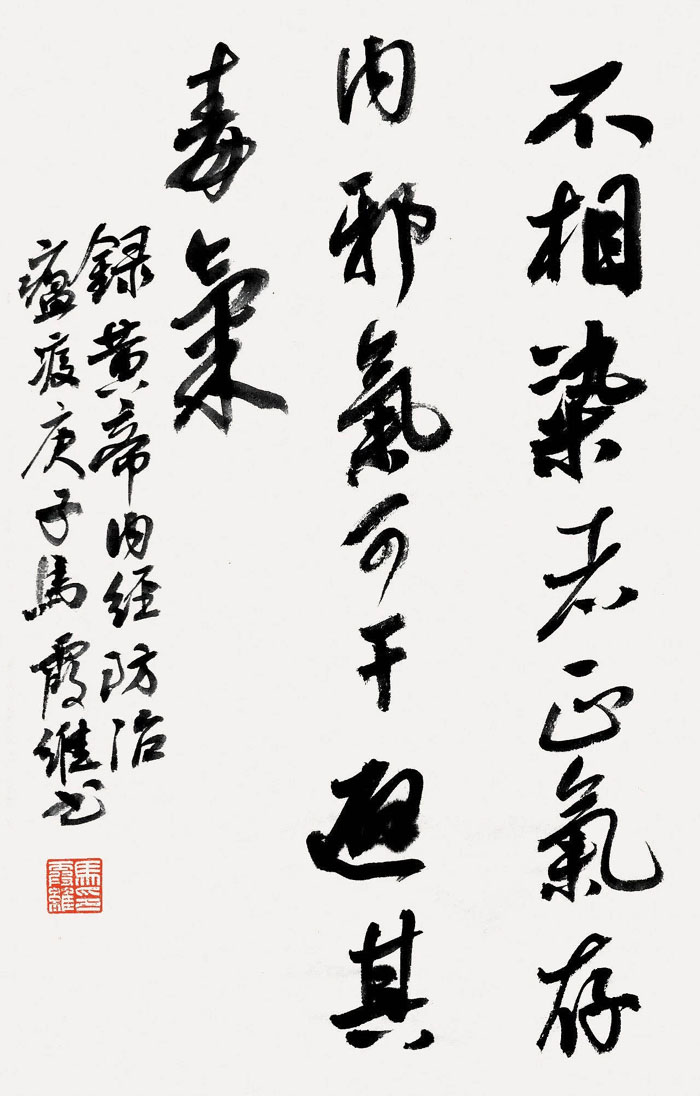 不相染者正氣存
内邪氣可干避其
毒氣
録黄帝内經防治
瘟疫庚子馬霞維书
馬印
霞維